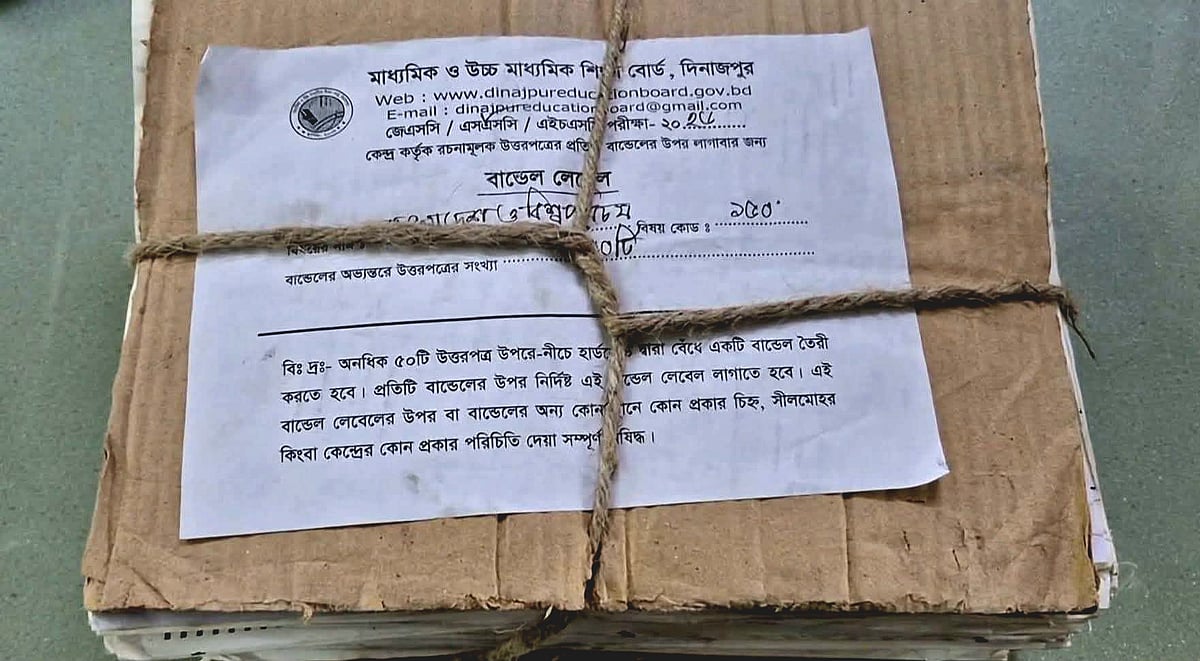 মাধ্যমিক ও উচ্চ মাধ্যমিক শিক্ষা বোর্ড, দিনাজপুর
Web : www.dinajpureducationboard.gov.bd
E-mail : dinajpureducationboard@gmail.com
জেএসসি / এসএসসি / এইচএসসি পরীক্ষা- ২০
কেন্দ্র কর্তৃক রচনামূলক উত্তরপত্রের প্রতিটি বান্ডেলের উপর লাগাবার জন্য
বান্ডেল লেবেল
ও বিশ্বপরিচয় বিষয় কোড : ১৫০
বান্ডেলের অভ্যন্তরে উত্তরপত্রের সংখ্যা
বিঃ দ্রঃ- অনধিক ৫০টি উত্তরপত্র উপরে-নীচে হার্ডবোর্ড দ্বারা বেঁধে একটি বান্ডেল তৈরী
করতে হবে। প্রতিটি বান্ডেলের উপর নির্দিষ্ট এই বান্ডেল লেবেল লাগাতে হবে। এই
বান্ডেল লেবেলের উপর বা বান্ডেলের অন্য কোন স্থানে কোন প্রকার চিহ্ন, সীলমোহর
কিংবা কেন্দ্রের কোন প্রকার পরিচিতি দেয়া সম্পূর্ণ নিষিদ্ধ।